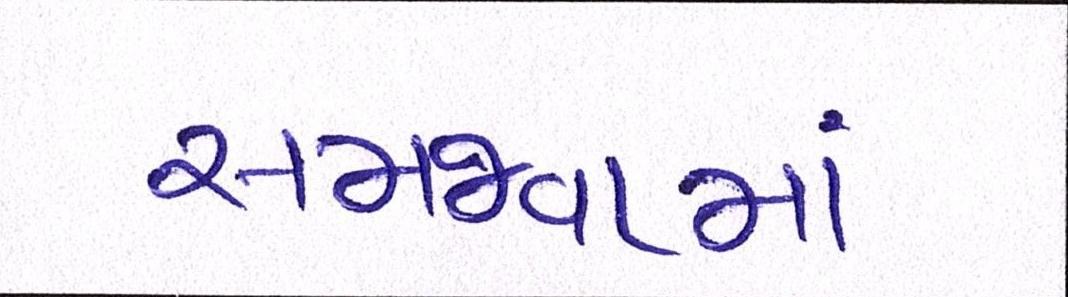 સમજવામાં